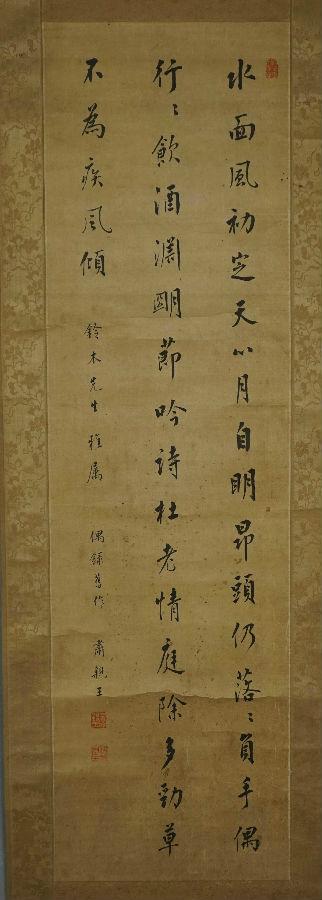 水面風初定天心月自明昂頭仍落〻負手偶
行〻飲酒淵明節吟詩杜老情庭除多勁草
不為疾风傾
鈴木先生雅属 偶録舊作 肅親王